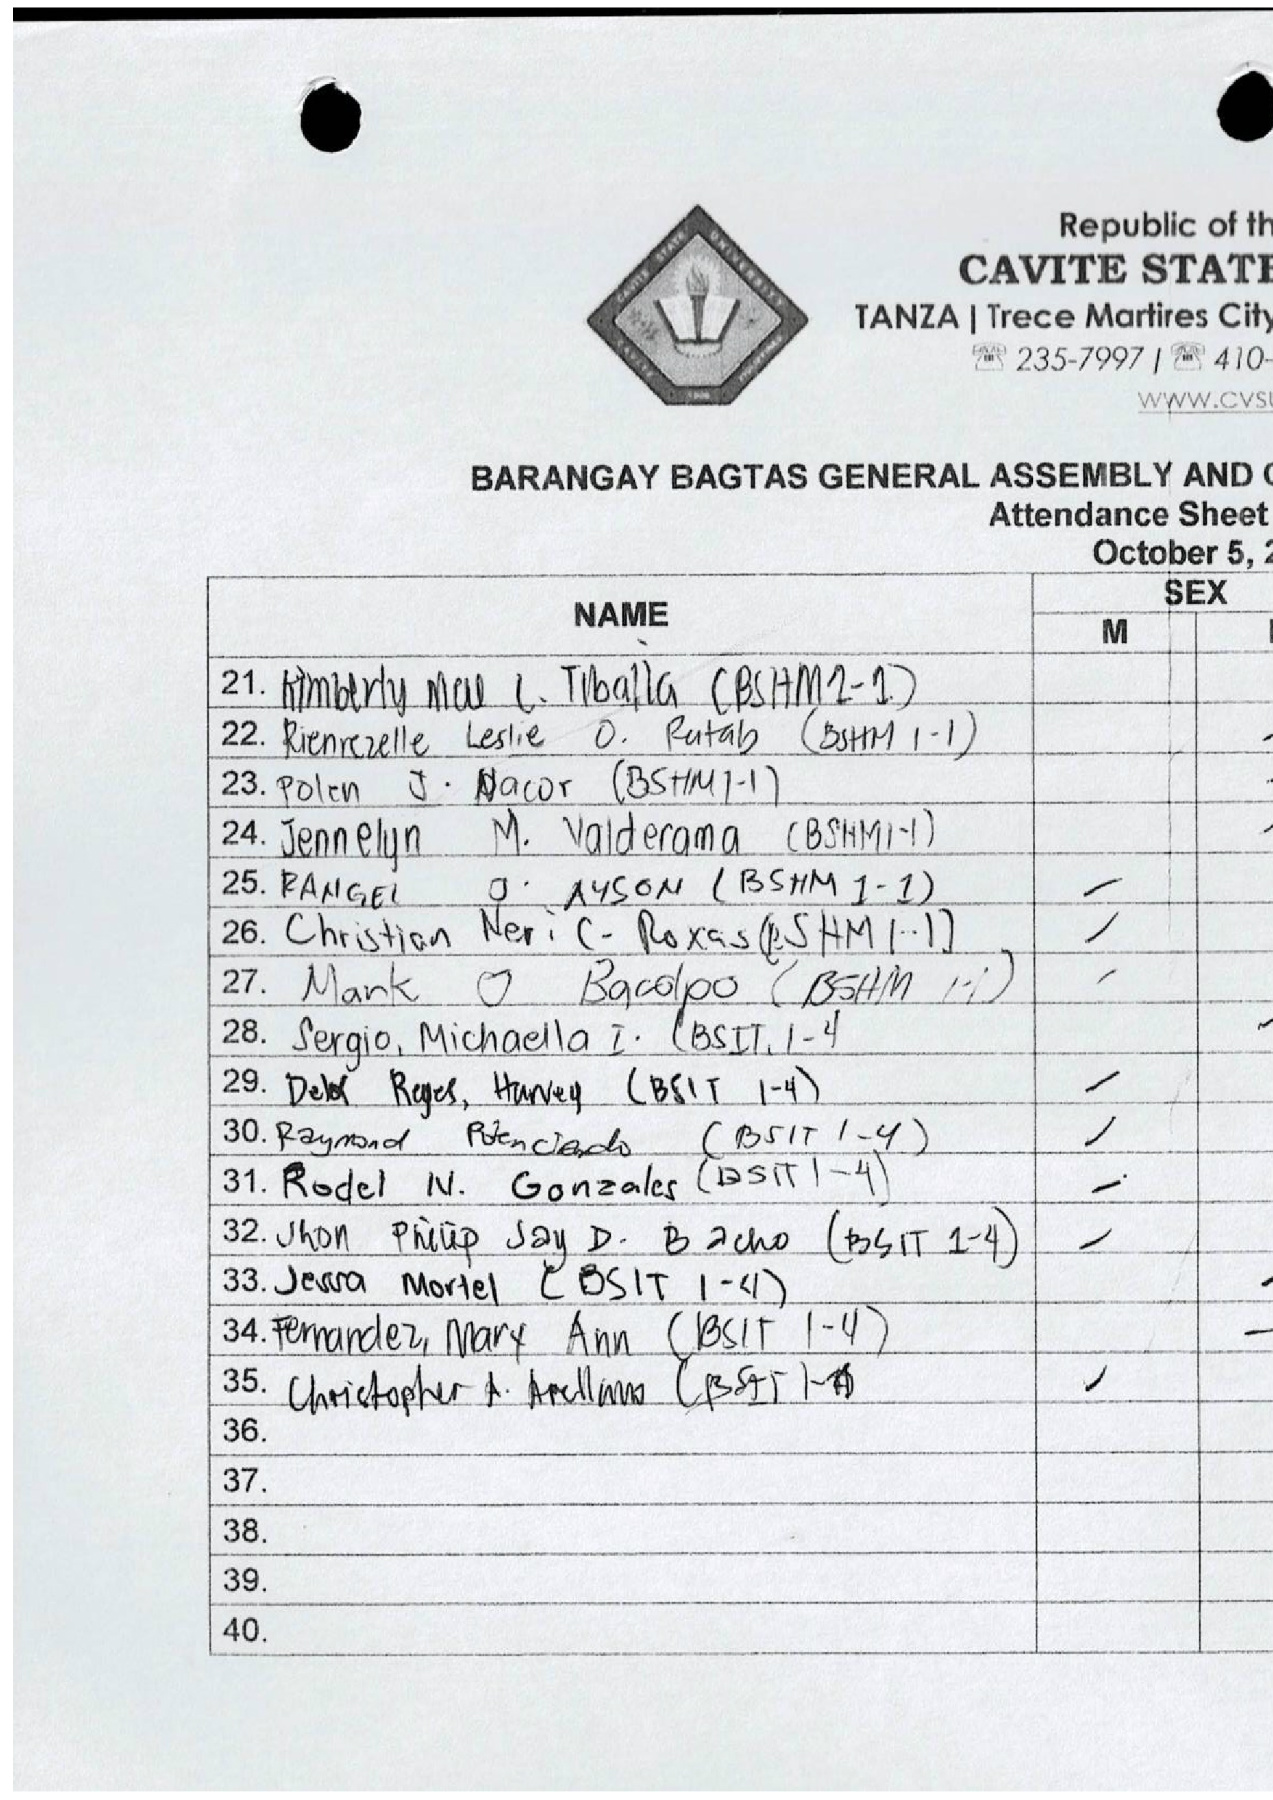 CAVITE STATE UNIVERSITY
CAVITE
1906
Republic of th
CAVITE STATE
TANZA | Trece Martires City
235-7997 | ☏ 410-
WWW.CVSU
BARANGAY BAGTAS GENERAL ASSEMBLY AND C
Attendance Sheet
October 5, 2
NAME
SEX
M
21. Kimberly Mae L. Tiballa (BSHM 1-1)
22. Rienrezelle Leslie O. Rutab (BSHM 1-1)
23. Polen J. Nacor (BSHM 1-1)
24. Jennelyn M. Valderama (BSHM1-1)
25. RANGEL O. AYSON (BSHM 1-1)
26. Christian Neri C- Roxas (BSHM 1-1)
27. Mark O Bacolpo (BSHM 1-1)
28. Sergio, Michaella I. (BSIT. 1-4
29. Delos Reyes, Harvey (BSIT 1-4)
30. Raymond Potenciado (BSIT 1-4)
31. Rodel N. Gonzales (BSIT 1-4)
32. Jhon Philip Jay D. Bacho (BSIT 1-4)
33. Jessa Mortel (BSIT 1-4)
34. Fernandez, Mary Ann (BSIT 1-4)
35. Christopher A. Arellano (BSIT 1-4)
36.
37.
38.
39.
40.